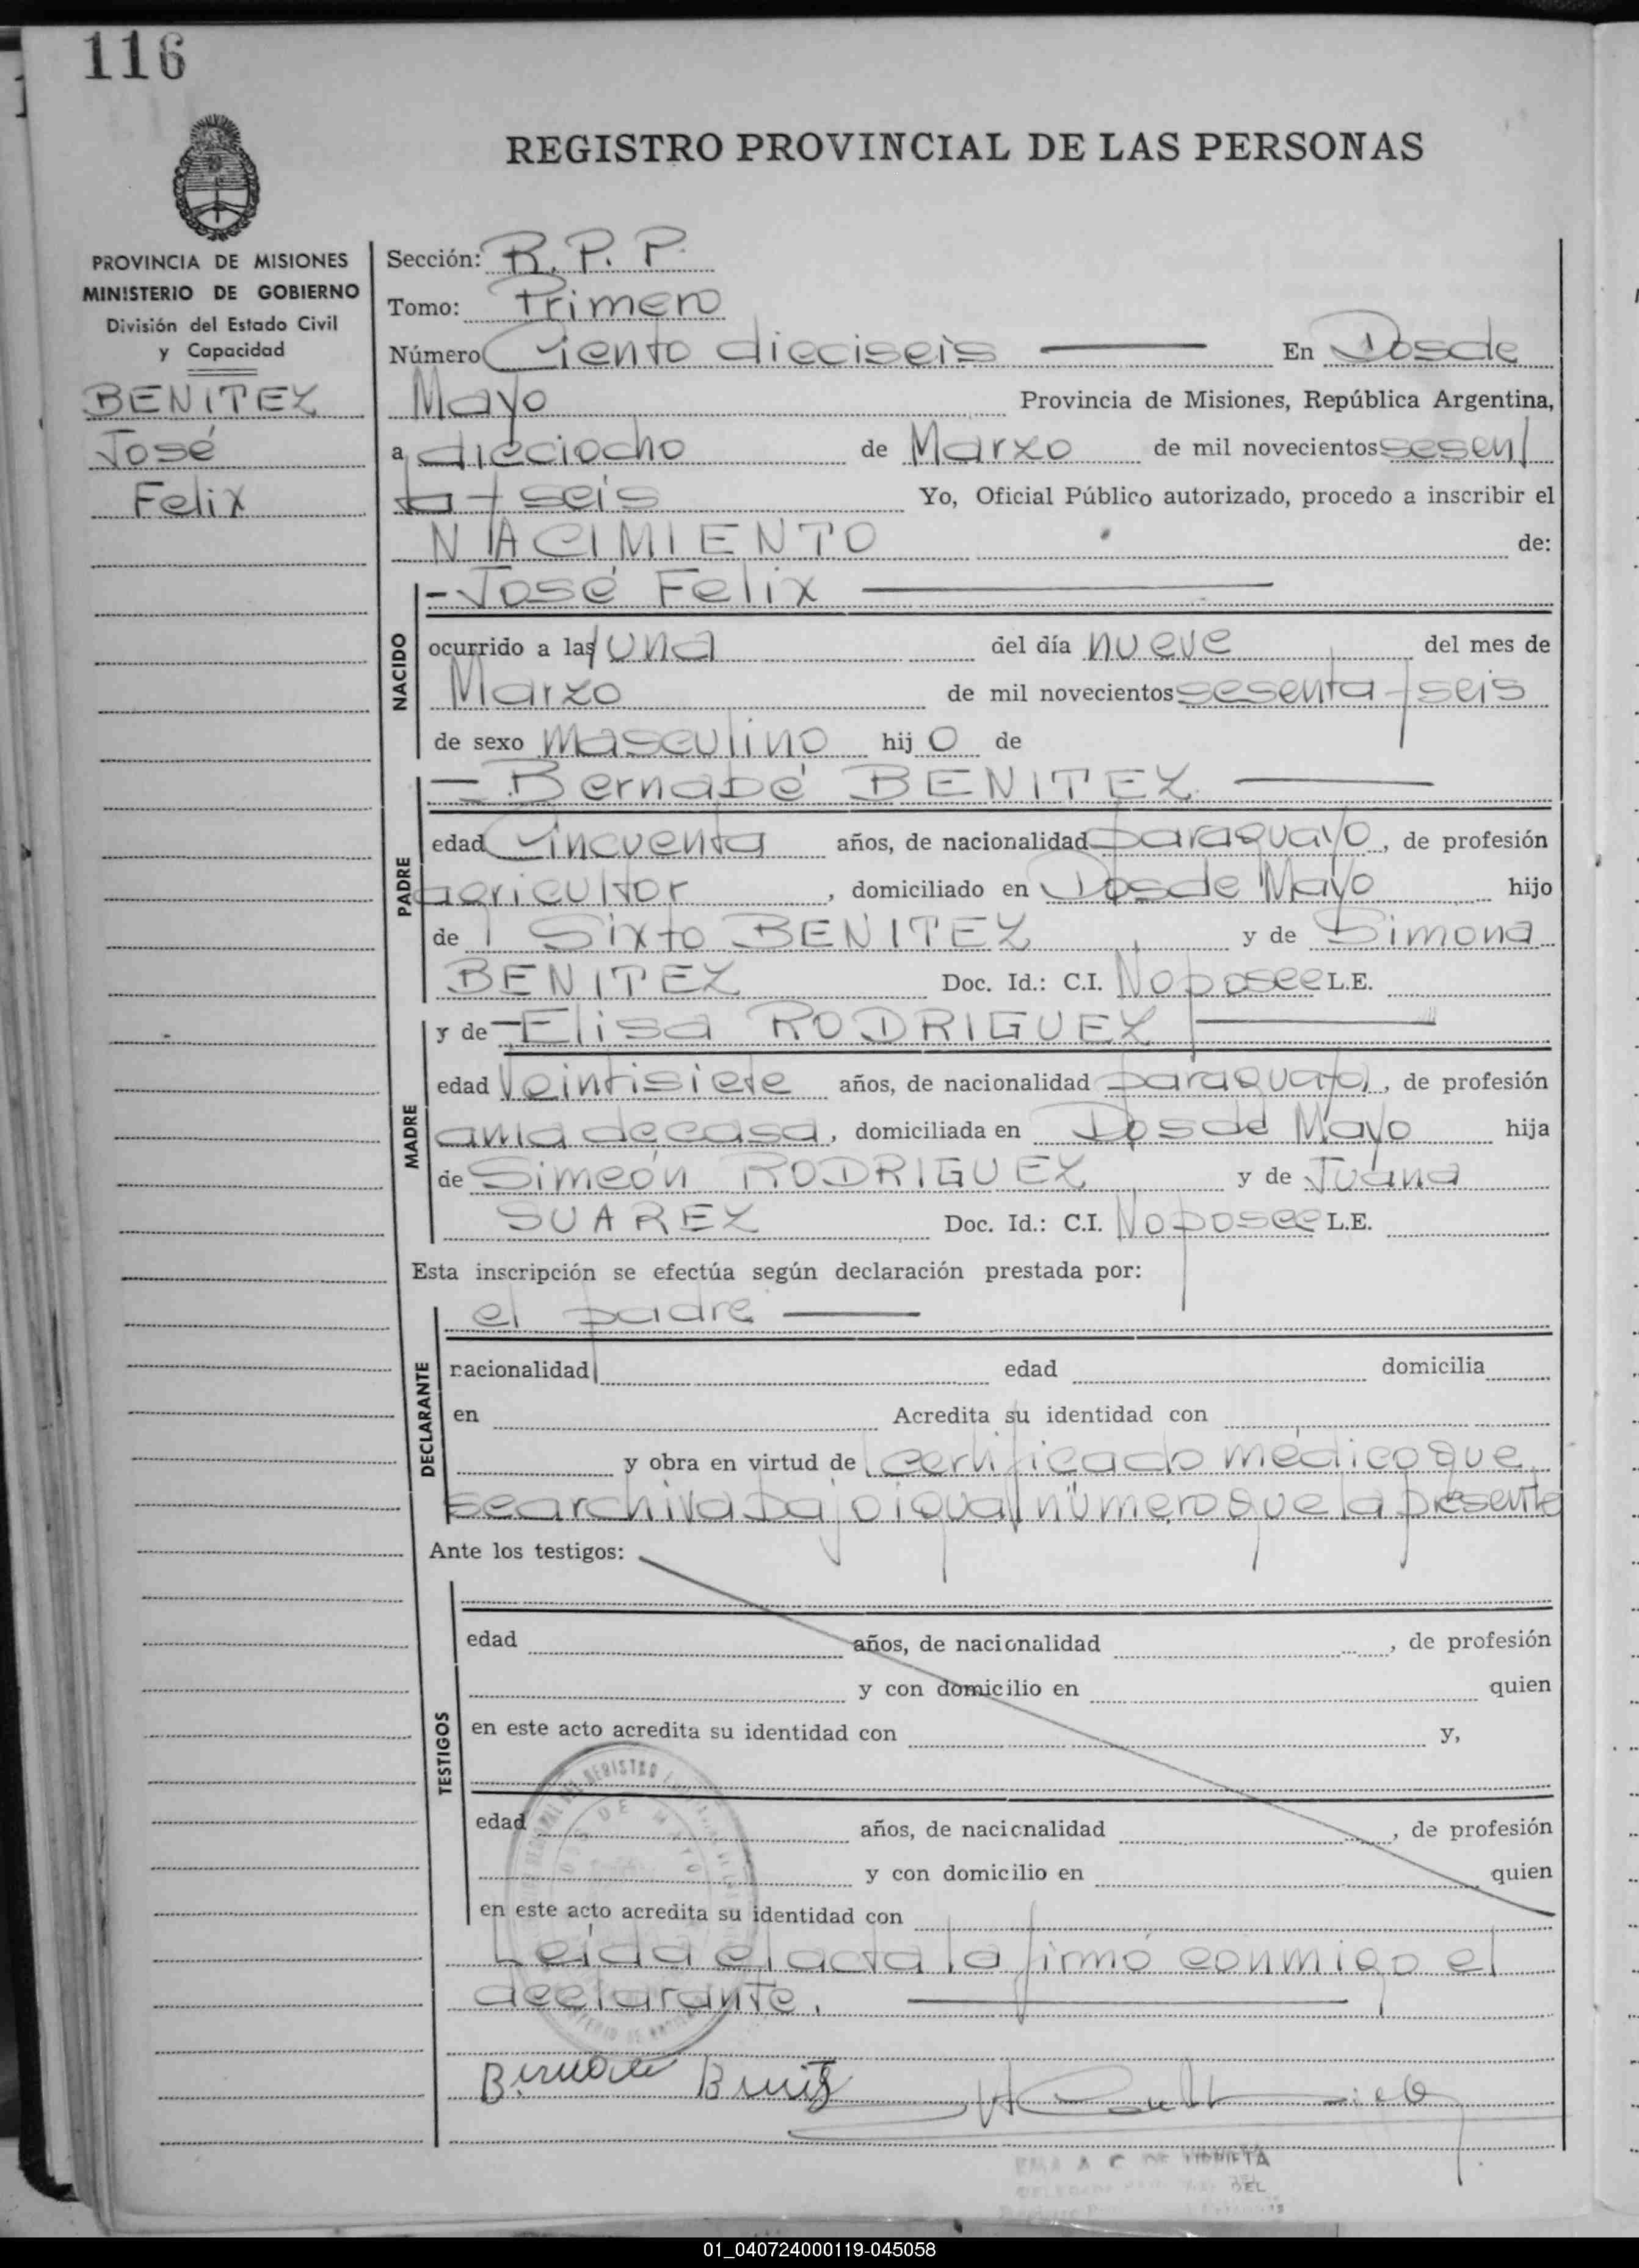 116
REGISTRO PROVINCIAL DE LAS PERSONAS
PROVINCIA DE MISIONES
MINISTERIO DE GOBIERNO
División del Estado Civil
y Capacidad
BENITEZ
José
Felix
Sección: R. P. P.
Tomo: Primero
Número Ciento dieciseis En Dos de
Mayo Provincia de Misiones, República Argentina,
a dieciocho de Marzo de mil novecientos sesen
ta y seis Yo, Oficial Público autorizado, procedo a inscribir el
NACIMIENTO de:
NACIDO
- José Felix
ocurrido a las una del día nueve del mes de
Marzo de mil novecientos sesenta y seis
de sexo masculino hijo de
PADRE
- Bernabé BENITEZ
edad Cincuenta años, de nacionalidad paraguayo, de profesión
agricultor, domiciliado en Dos de Mayo hijo
de Sixto BENITEZ y de Simona
BENITEZ Doc. Id.: C.I. No posee L.E.
MADRE
y de - Elisa RODRIGUEZ
edad Veintisiete años, de nacionalidad paraguaya, de profesión
ama de casa, domiciliada en Dos de Mayo hija
de Simeón RODRIGUEZ y de Juana
SUAREZ Doc. Id.: C.I. No posee L.E.
Esta inscripción se efectúa según declaración prestada por:
DECLARANTE
el padre
nacionalidad edad domicilia
en Acredita su identidad con
y obra en virtud de certificado médico que
se archiva bajo igual número que la presente
Ante los testigos:
TESTIGOS
edad años, de nacionalidad , de profesión
y con domicilio en quien
en este acto acredita su identidad con y,
edad años, de nacionalidad , de profesión
y con domicilio en quien
en este acto acredita su identidad con
Leída el acta la firmó conmigo el
declarante.
DEL REGISTRO
DOS DE MAYO
DEL
01_040724000119-045058